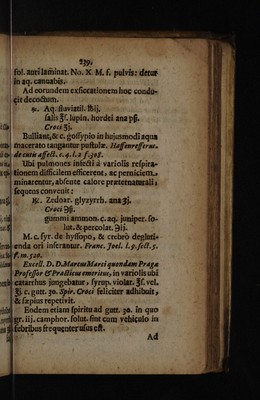 239.
fol. auri laminat. No. X. M. f. pulvis: detur
in aq. cannabis.
Ad eorundem exsiccationem hoc condu-
cit decoctum.
℞. Aq. fluviatil. ℔ij.
salis ℥ß. lupin. hordei ana pß.
Croci ʒj.
Bulliant, & c. gossypio in hujusmodi aqua
macerato tangantur pustulæ. Haffenrefferus.
de cute affect. l. 4. c. 2 f. 308.
Ubi pulmones infecti â variolis respira-
tionem difficilem efficerent, ac perniciem
minarentur, absente calore præternaturali,
sequens convenit:
℞. Zedoar. glyzyrrh. ana ʒj.
Croci ℈ß.
gummi ammon. c. aq. juniper. so-
lut. & percolat. ℈ij.
M. c. syr. de hyssopo, & crebrò degluti-
enda ori inserantur. Franc. Joel. l. 5. sect. 5.
f. m. 520.
Excell. D. D. Marcus Marci quondam Praga
Professor & Practicus emeritus, in variolis ubi
catarrhus jungebatur, syrup. violar. ℥ß. vel
℥j. c. gutt. 30. Spir. Croci feliciter adhibuit,
& sæpius repetivit.
Eodem etiam spiritu ad gutt. 30. in quo
gr. iij. camphor. solut. sint cum vehiculo in
febribus frequenter usus est.
Ad